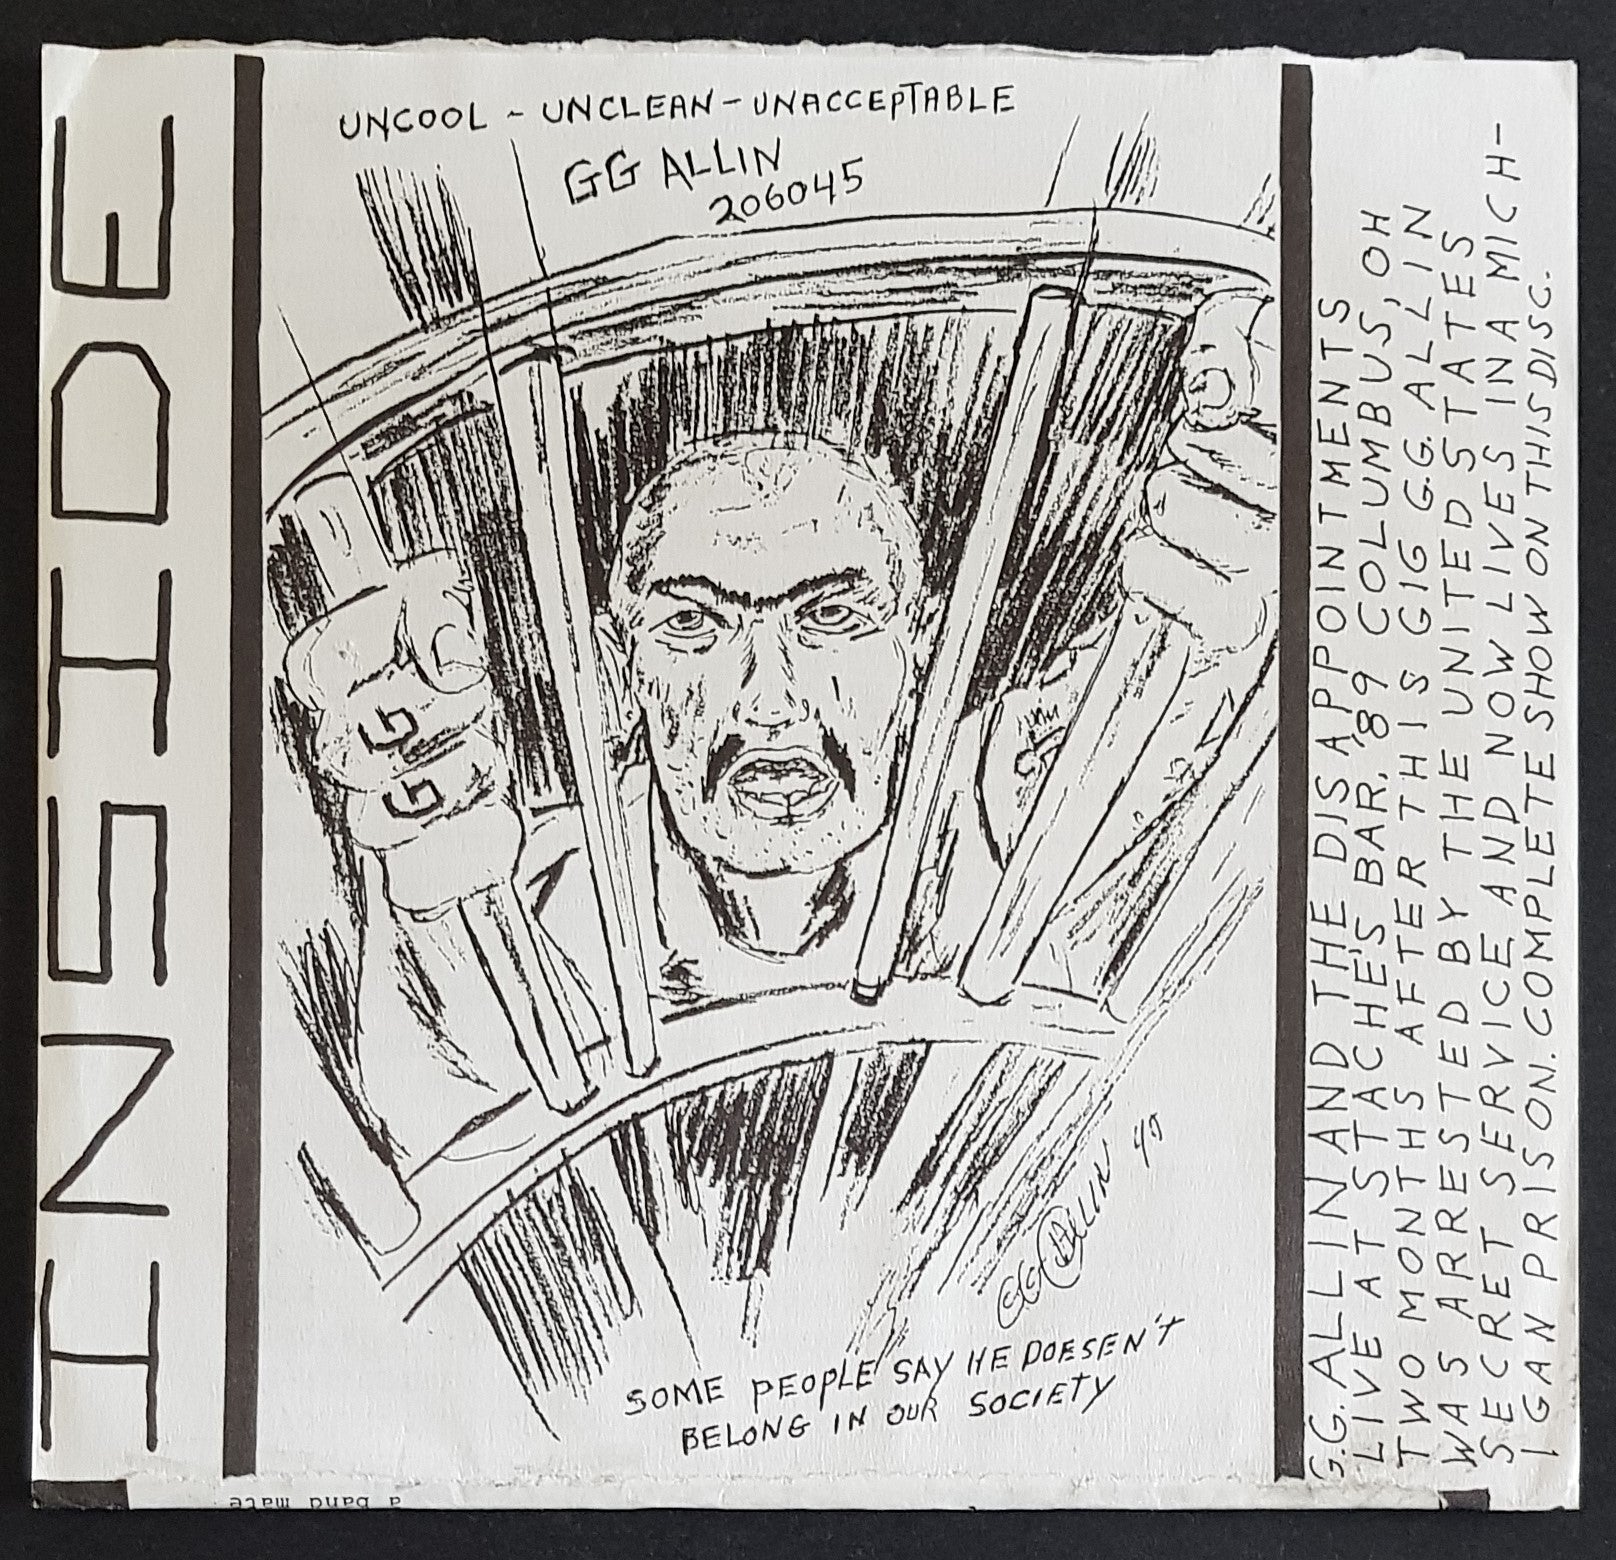 INSIDE
UNCOOL - UNCLEAN - UNACCEPTABLE
GG ALLIN
206045
GG
GG ALLIN 90
SOME PEOPLE SAY HE DOESEN'T
BELONG IN OUR SOCIETY
G.G. ALLIN AND THE DISAPPOINTMENTS
LIVE AT STACHE'S BAR, '89 COLUMBUS, OH
TWO MONTHS AFTER THIS GIG G.G. ALLIN
WAS ARRESTED BY THE UNITED STATES
SECRET SERVICE AND NOW LIVES IN A MICH-
IGAN PRISON. COMPLETE SHOW ON THIS DISC.
a band mate